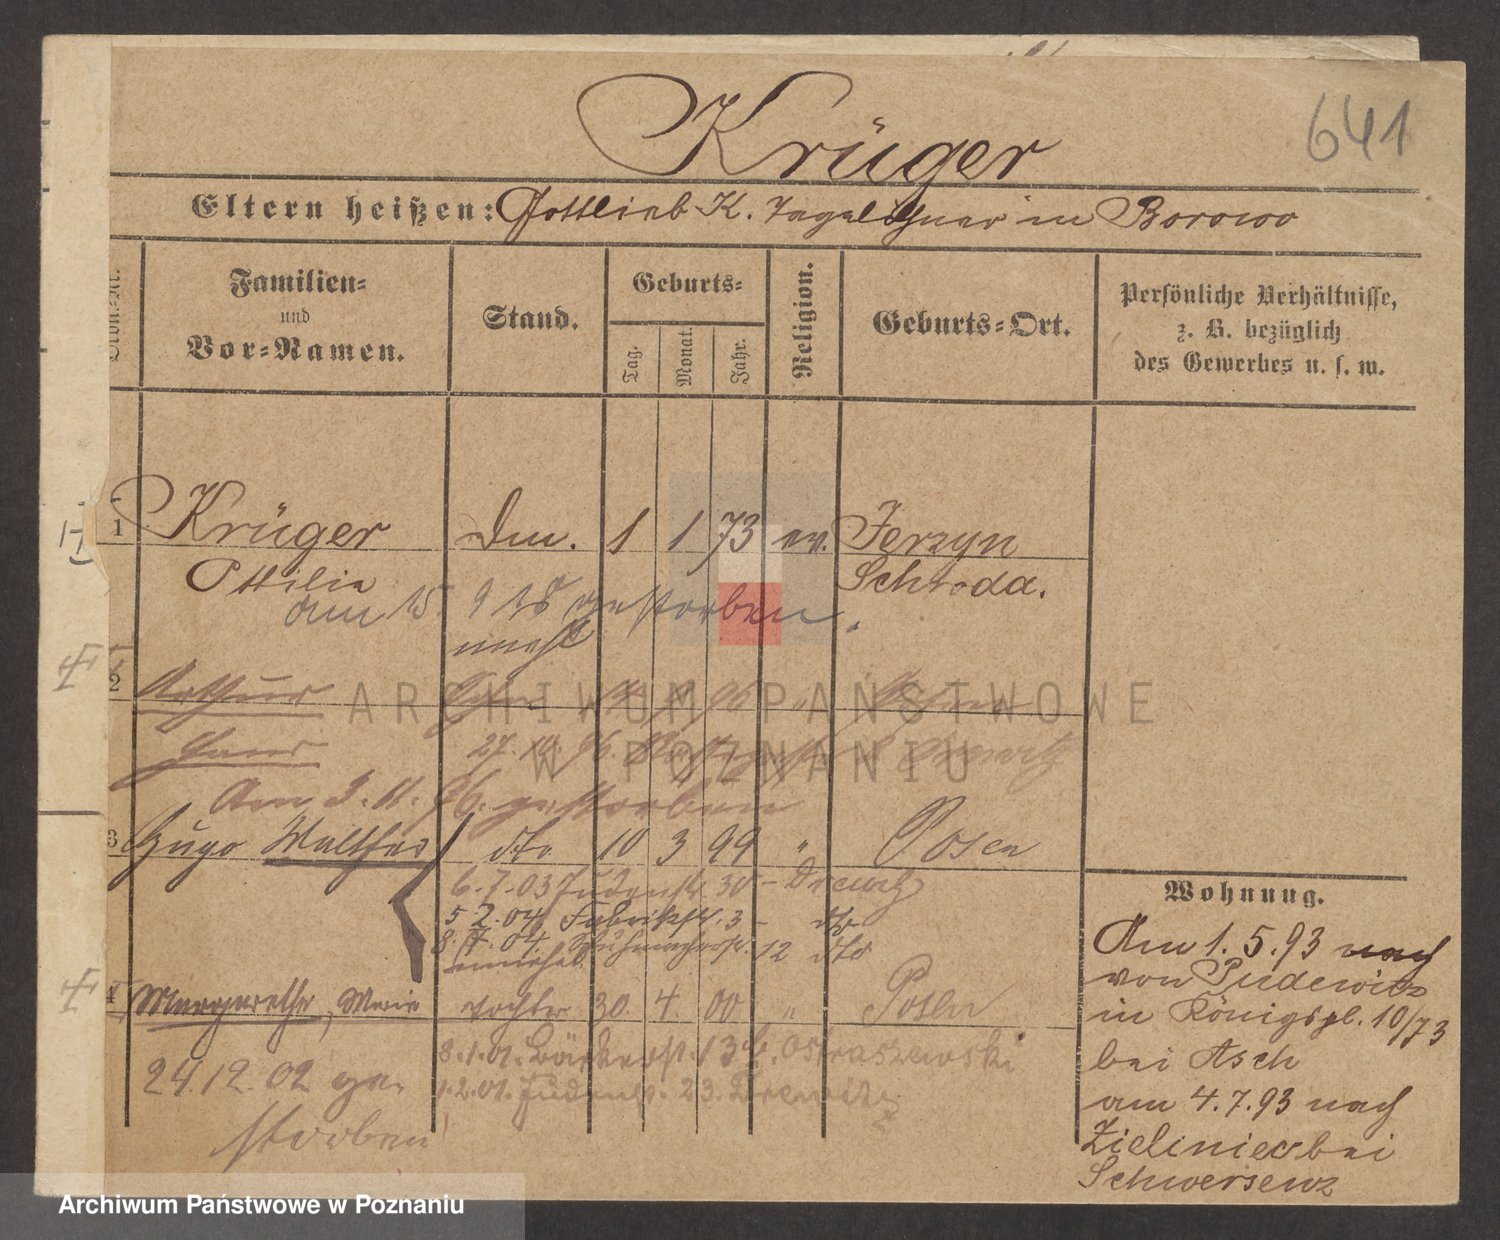 641
Krüger
Eltern heißen: Gottlieb K. Tagelöhner in Borowo
Familien-
und
Vor-Namen.
Stand.
Geburts-
Tag.
Monat.
Jahr.
Religion.
Geburts-Ort.
Persönliche Verhältnisse,
z. B. bezüglich
des Gewerbes u. s. w.
1 Krüger Dm. 1 1 73 ev. Jerzyn
Ottilie Schroda.
am 15 9 18 gestorben.
2 Arthur
Hans 27. 10. 96.
Am 3. 11. 96. gestorben
3 Hugo Walther dto 10 3 99 " Posen
6. 7. 03 Judenstr. 30 - Drewitz
5 2. 04. Fabrikstr. 3 - dto
8. 04. Schuhmacherstr. 12 dto
4 Margarethe, Marie Tochter 30. 4. 00 " Posen
8. 1. 01. Bäckerstr. 13 b. Ostraszewski
1. 2. 01. Judenstr. 23. Drewitz
24.12.02 ge-
storben
Wohnung.
Am 1. 5. 93 nach
von Pudewitz
in Königspl. 10/73
bei Asch
am 4. 7. 93 nach
Zieliniec bei
Schwersenz
ARCHIWUM PAŃSTWOWE
W POZNANIU
Archiwum Państwowe w Poznaniu